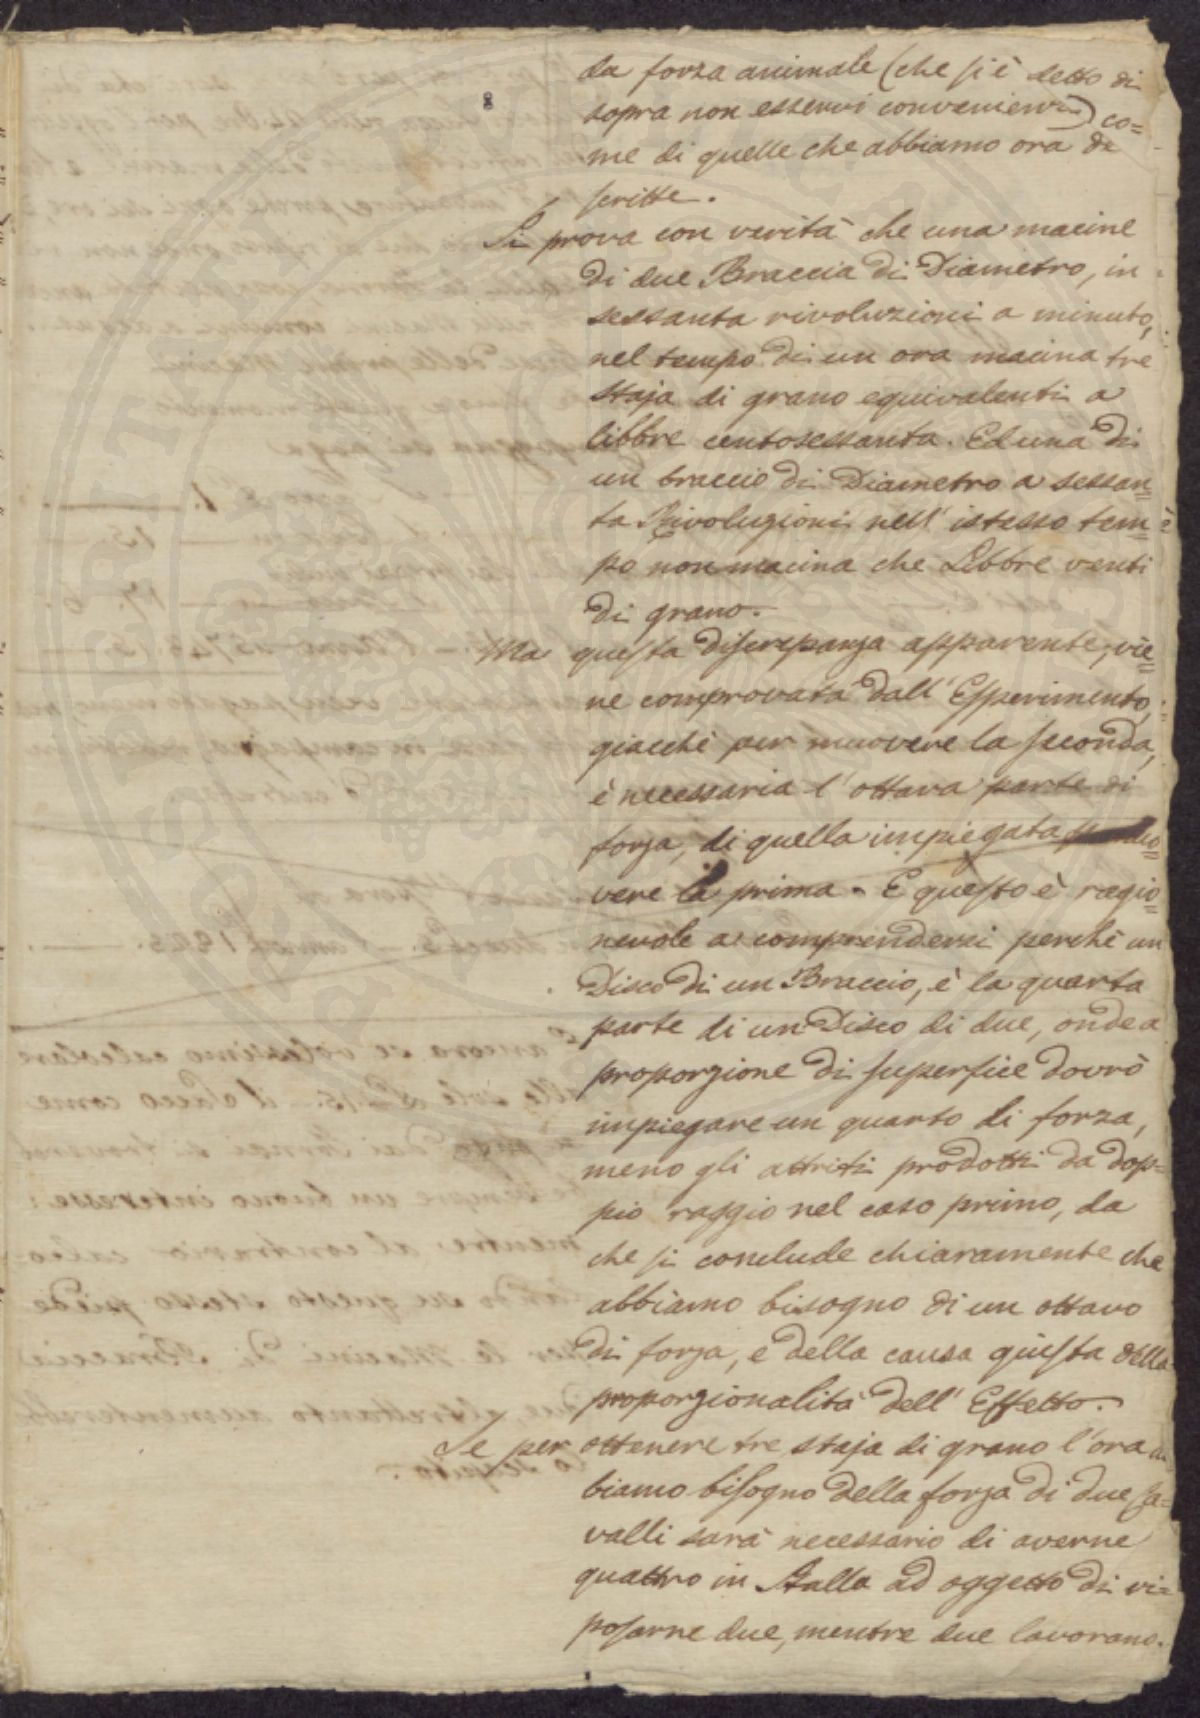 8
da forza animale (che si è detto di
sopra non esservi convenienza) co=
me di quelle che abbiamo ora de
scritte.
Si prova con verità che una macine
di due Braccia di Diametro, in
sessanta rivoluzioni a minuto,
nel tempo di un ora macina tre
staja di grano equivalenti a
libbre centosessanta. Ed una di
un braccio di Diametro a sessan=
ta Rivoluzioni nell' istesso tem=
po non macina che Libbre venti
di grano.
Ma questa discrepanza apparente, vie=
ne comprovata dall' Esperimento,
giacchè per muovere la seconda,
è necessaria l' ottava parte di
forza, di quella impiegata
vere la prima. E questo è ragio=
nevole a comprendersi perchè un
Disco di un Braccio, è la quarta
parte di un Disco di due, onde a
proporzione di superfice dovrò
impiegare un quarto di forza,
meno gli attriti prodotti da dop=
pio raggio nel caso primo, da
che si conclude chiaramente che
abbiamo bisogno di un ottavo
di forza, e della causa giusta della
proporzionalità dell' Effetto.
Se per ottenere tre staja di grano l'ora ab
biamo bisogno della forza di due Ca=
valli sarà necessario di averne
quattro in Stalla ad oggetto di ri=
posarne due, mentre due lavorano.